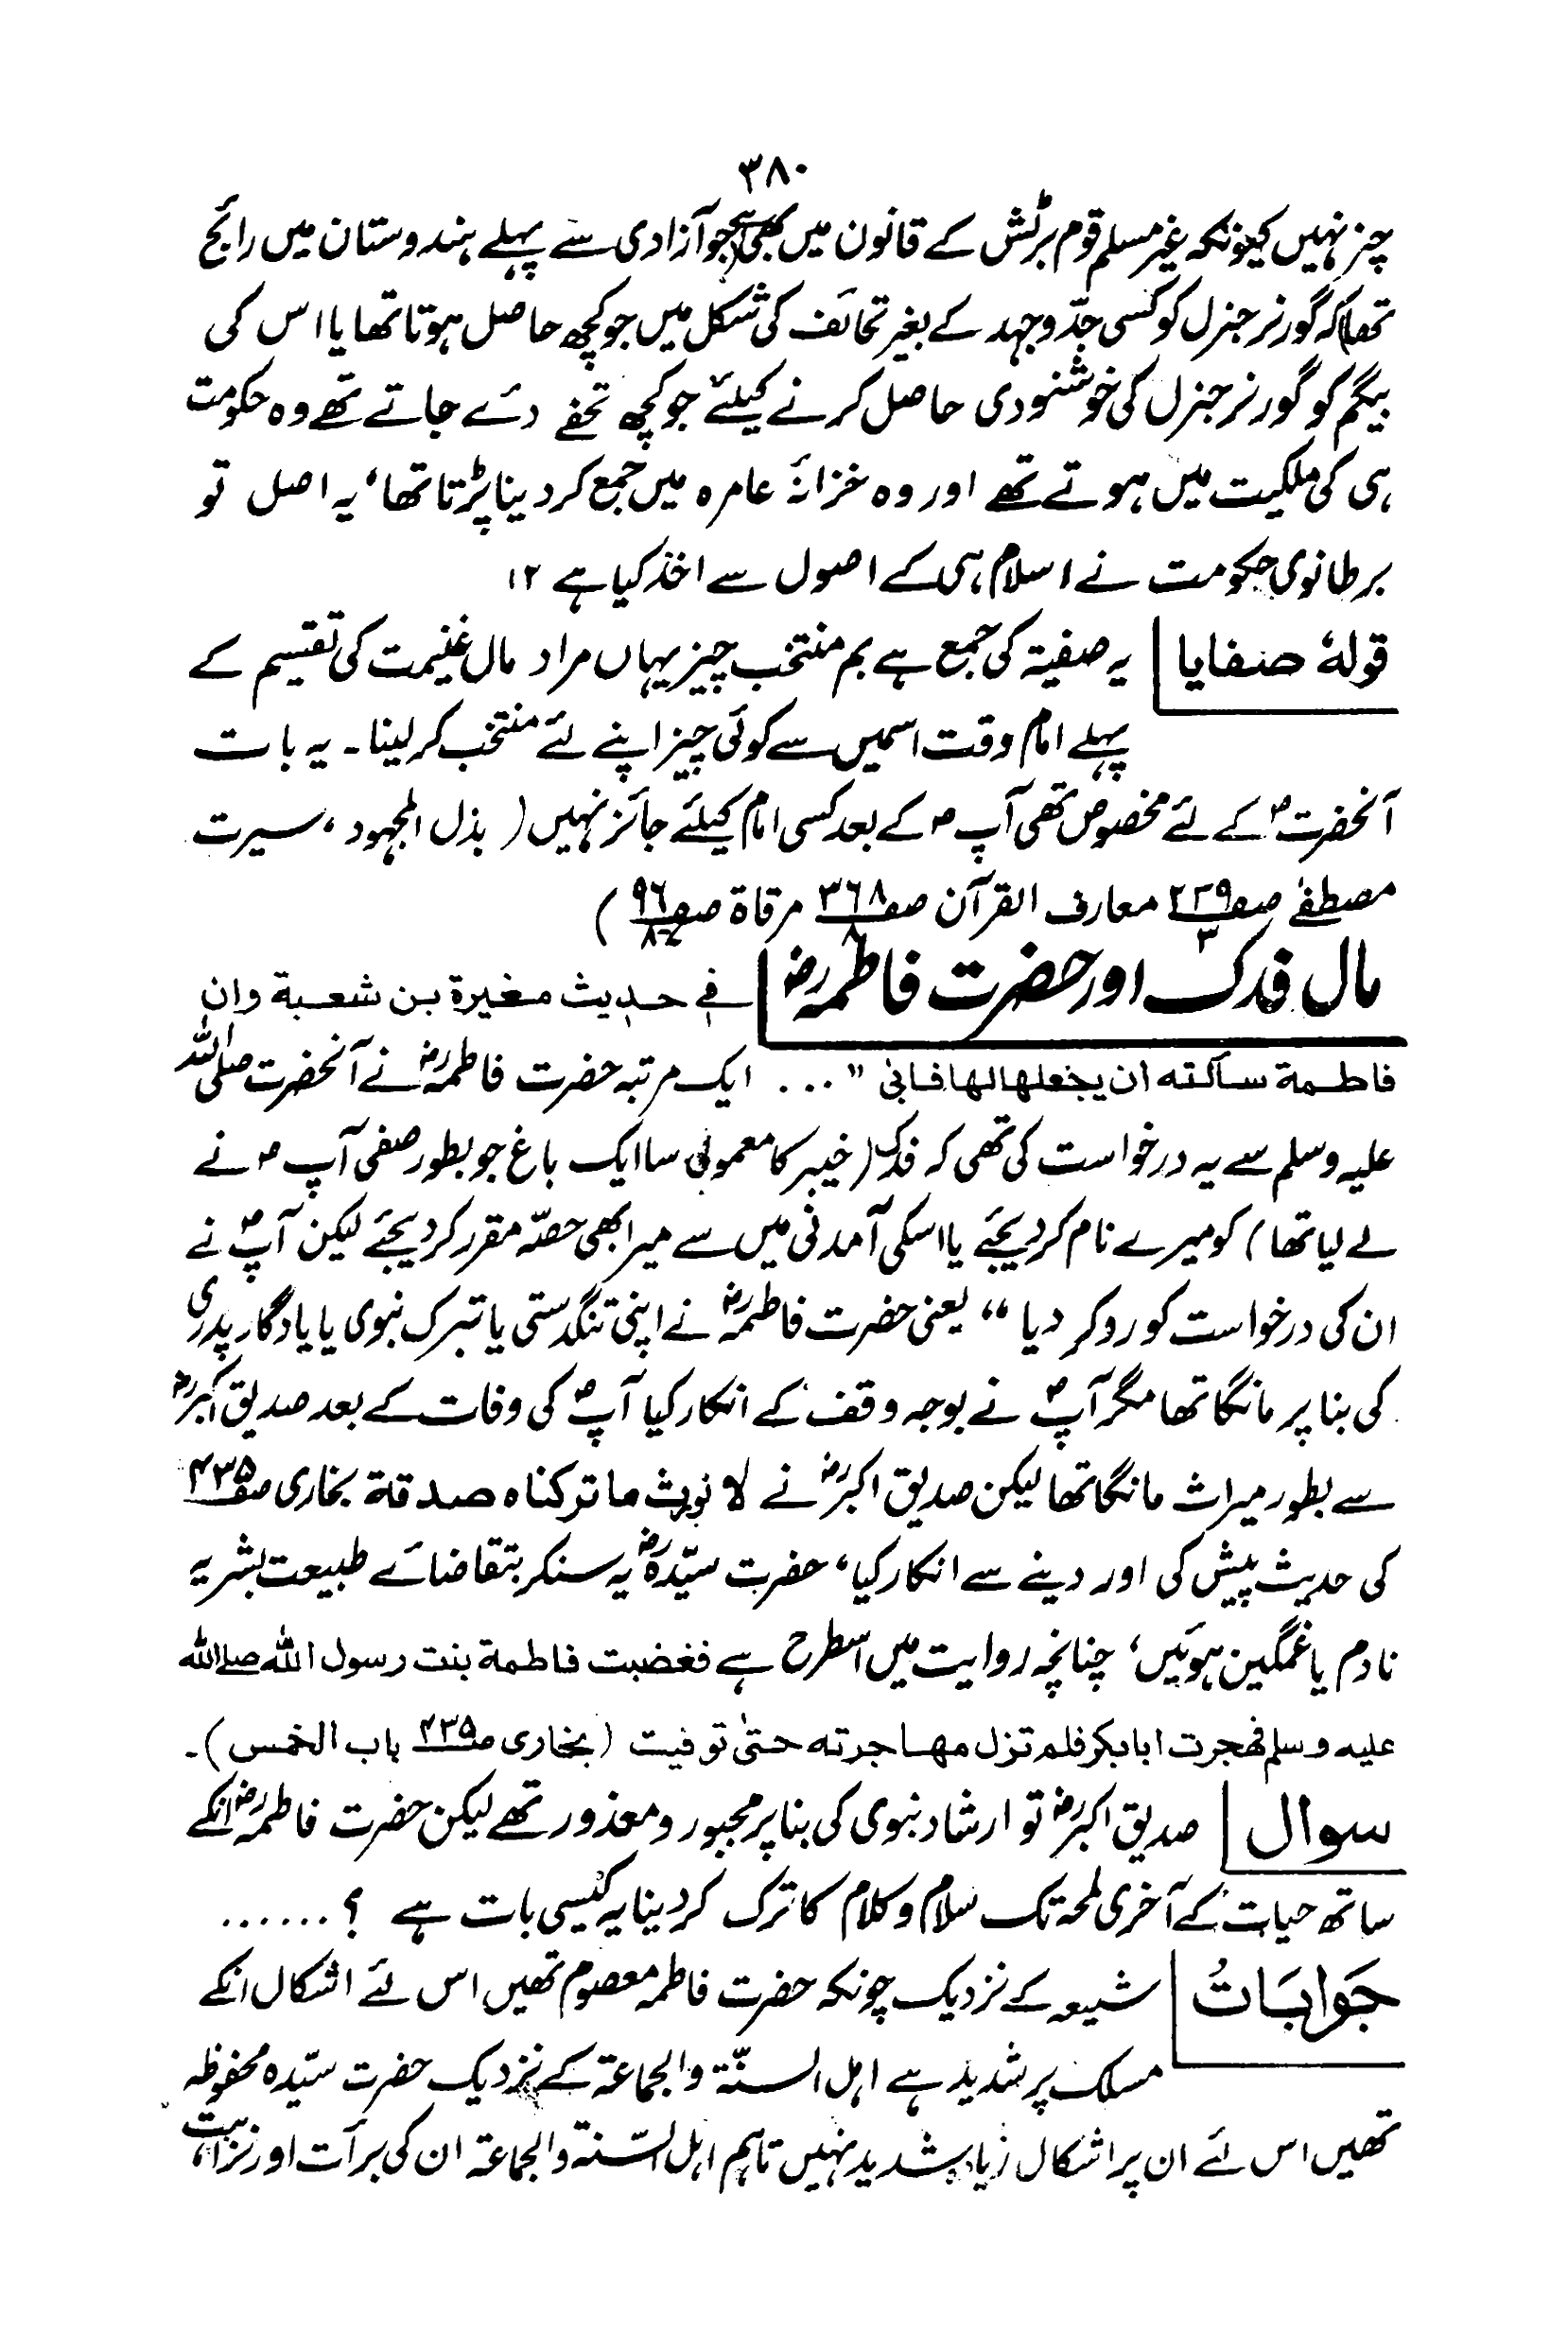 ۳۸۰
چیز نہیں کیونکہ غیر مسلم قوم برٹش کے قانون میں بھی (جو آزادی سے پہلے ہندوستان میں رائج
تھا) کہ گورنر جنرل کو کسی جدّ وجہد کے بغیر تحائف کی شکل میں جو کچھ حاصل ہوتا تھا یا اس کی
بیگم کو گورنر جنرل کی خوشنودی حاصل کرنے کیلئے جو کچھ تحفے دئے جاتے تھے وہ حکومت
ہی کی ملکیت میں ہوتے تھے اور وہ خزانۂ عامرہ میں جمع کر دینا پڑتا تھا، یہ اصل تو
برطانوی حکومت نے اسلام ہی کے اصول سے اخذ کیا ہے ۱۲
قولہٗ صفایا | یہ صفیۃ کی جمع ہے بم منتخب چیز یہاں مراد مال غنیمت کی تقسیم کے
پہلے امام وقت اسمیں سے کوئی چیز اپنے لئے منتخب کر لینا ۔ یہ بات
آنحضرتؐ کے لئے مخصوص تھی آپؐ کے بعد کسی امام کیلئے جائز نہیں ( بذل المجہود ، سیرت
مصطفےٰ صـ۲۳۹/۳ معارف القرآن صـ۳۶۸/۸ مرقاۃ صـ۹۶/۸ )
مال فدک اور حضرت فاطمہؓ | فے حدیث مغیرة بن شعبة وان
فاطمة سألته ان يجعلها لها فابى " ... ایک مرتبہ حضرت فاطمہؓ نے آنحضرت صلی اللہ
علیہ وسلم سے یہ درخواست کی تھی کہ فدک (خیبر کا معمولی سا ایک باغ جو بطور صفی آپؐ نے
لے لیا تھا) کو میرے نام کر دیجئے یا اسکی آمدنی میں سے میرا بھی حصّہ مقرر کر دیجئے لیکن آپؐ نے
ان کی درخواست کو رو کر دیا " یعنی حضرت فاطمہؓ نے اپنی تنگدستی یا تبرک نبوی یا یادگار پدری
کی بنا پر مانگا تھا مگر آپؐ نے بوجہ وقف کے انکار کیا آپؐ کی وفات کے بعد صدیق اکبرؓ
سے بطور میراث مانگا تھا لیکن صدیق اکبرؓ نے لا نورث ما ترکناہ صدقة بخاری صـ۴۳۵
کی حدیث پیش کی اور دینے سے انکار کیا، حضرت سیّدہؓ یہ سنکر بتقاضائے طبیعت بشریہ
نادم یا غمگین ہوئیں، چنانچہ روایت میں اسطرح ہے فغضبت فاطمة بنت رسول الله صلى الله
عليه وسلم فهجرت ابابكر فلم تزل مهاجرته حتىٰ توفيت (بخاری صـ۴۳۵ باب الخمس) ۔
سوال | صدیق اکبرؓ تو ارشاد نبوی کی بنا پر مجبور و معذور تھے لیکن حضرت فاطمہؓ انکے
ساتھ حیات کے آخری لمحہ تک سلام و کلام کا ترک کر دینا یہ کیسی بات ہے ؟ ......
جَوابَاتُ | شیعہ کے نزدیک چونکہ حضرت فاطمہ معصوم تھیں اس لئے اشکال انکے
مسلک پر شدید ہے اہل السنّۃ والجماعۃ کے نزدیک حضرت سیّدہ محفوظہ
تھیں اس لئے ان پر اشکال زیادہ شدید نہیں تاہم اہل السّنۃ والجماعۃ ان کی برأت اور نزاہت